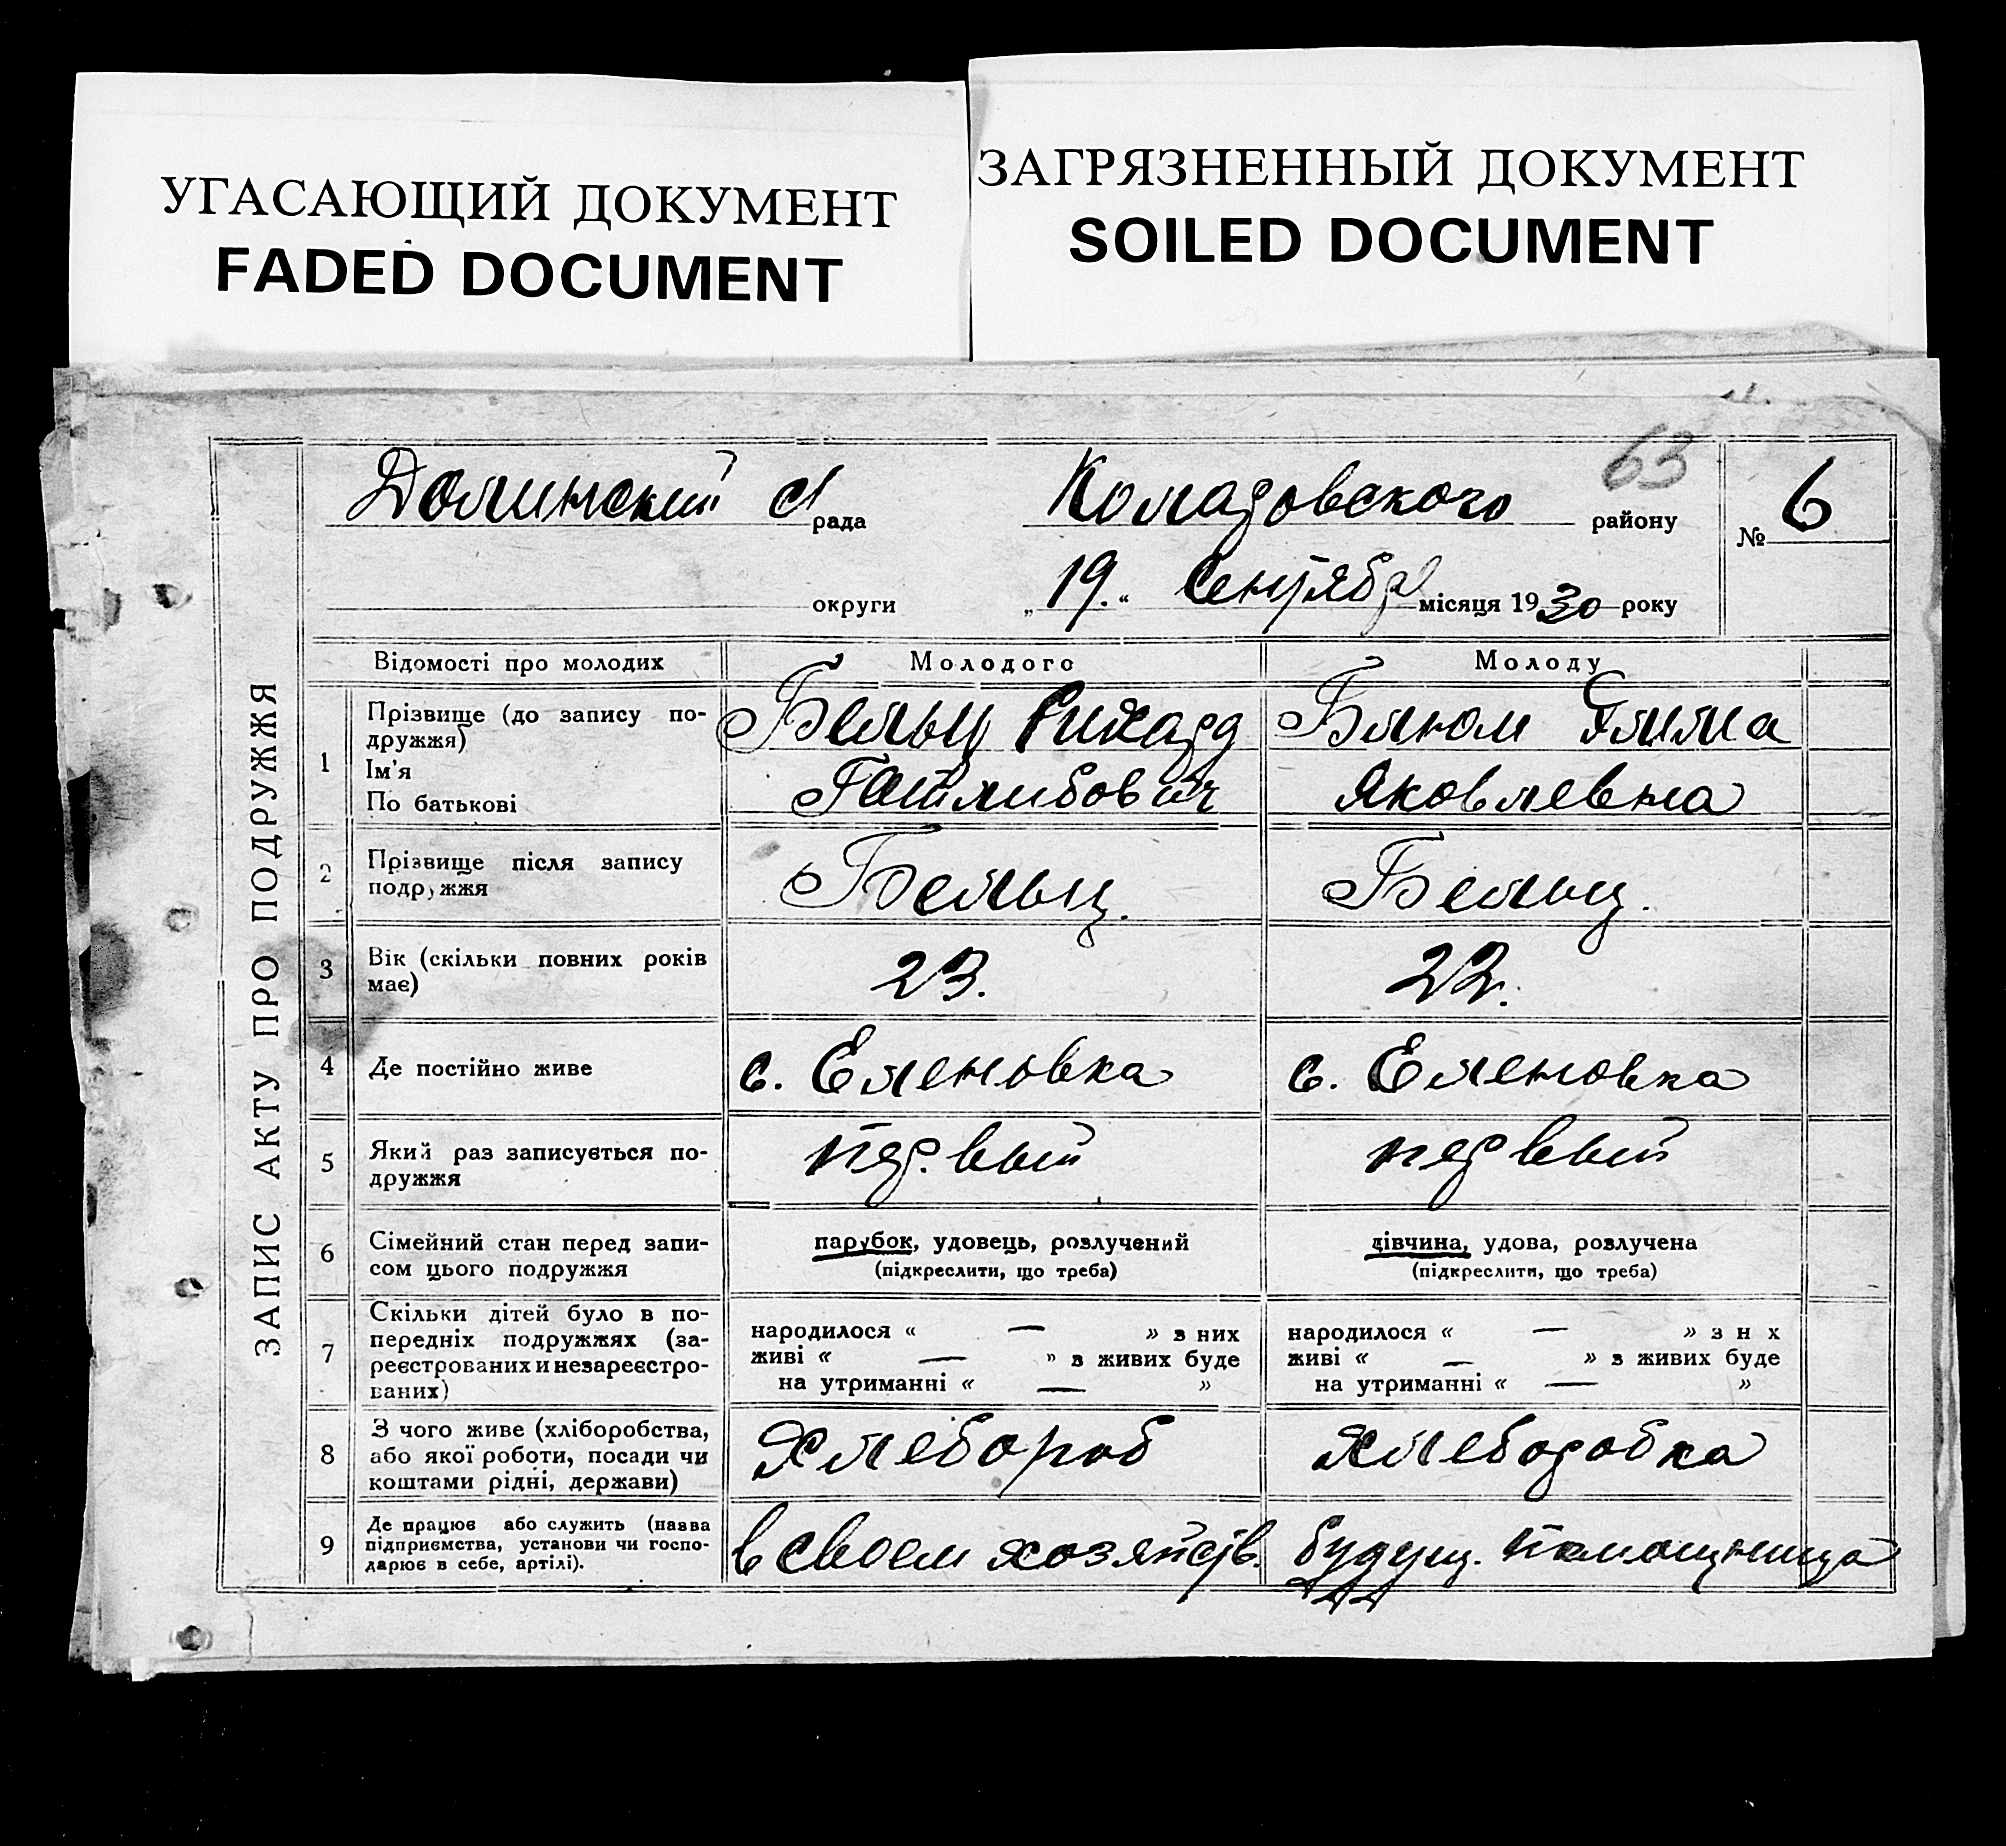 УГАСАЮЩИЙ ДОКУМЕНТ
FADED DOCUMENT
ЗАГРЯЗНЕННЫЙ ДОКУМЕНТ
SOILED DOCUMENT
63
ЗАПИС АКТУ ПРО ПОДРУЖЖЯ
Долинский с/рада района
округи
№ 6
„19.“ Сентября місяця 1930 року
Відомості про молодих
Молодого
Молоду
1
Прізвище (до запису по-
дружжя)
Ім'я
По батькові
Бельц Рихард
Готлибович
Блюм
Яковлевна
2
Прізвище після запису
подружжя
Бельц.
Бельц.
3
Вік (скільки повних років
має)
23.
22.
4
Де постійно живе
с. Еленовка
с. Еленовка
5
Який раз записується по-
дружжя
первый
первый
6
Сімейний стан перед запи-
сом цього подружжя
парубок, удовець, розлучений
(підкреслити, що треба)
дівчина, удова, розлучена
(підкреслити, що треба)
7
Скільки дітей було в по-
передніх подружжях (за-
реєстрованих и незареєстро-
ваних)
народилося « — » з них
живі « — » з живих буде
на утриманні « — »
народилося « — » з н х
живі « — » з живих буде
на утриманні « — »
8
З чого живе (хліборобства,
або якої роботи, посади чи
коштами рідні, держави)
Хлебороб
Хлеборобка
9
Де працює або служить (назва
підприємства, установи чи госпо-
дарює в себе, артілі).
в своем хозяйств.
будущ. помощница